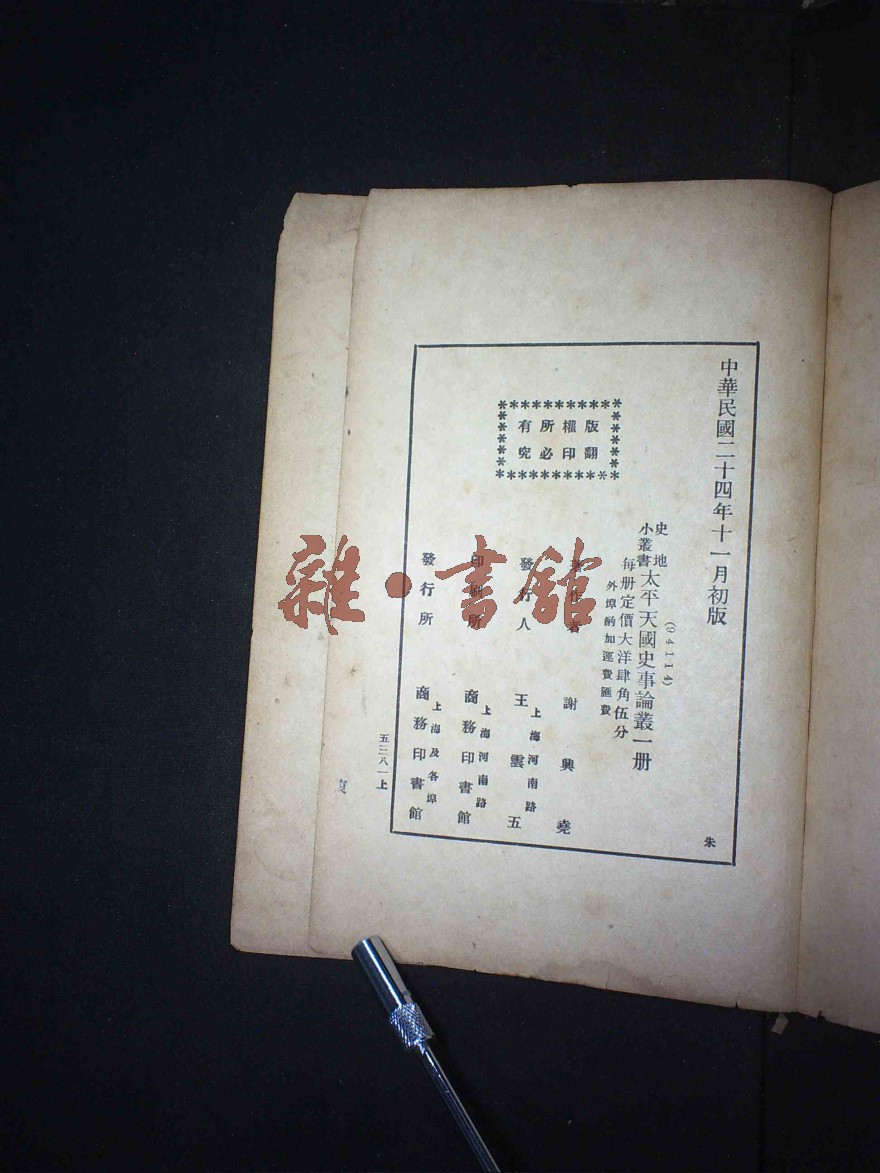 中華民國二十四年十一月初版
(94114)
史地
小叢書
太平天國史事論叢一册
每册定價大洋肆角伍分
外埠酌加運費匯費
版權所有
翻印必究
著作者 謝興堯
發行人 王雲五
上海河南路
印刷所 商務印書館
上海河南路
發行所 商務印書館
上海及各埠
五三八一上
朱
雜·書館